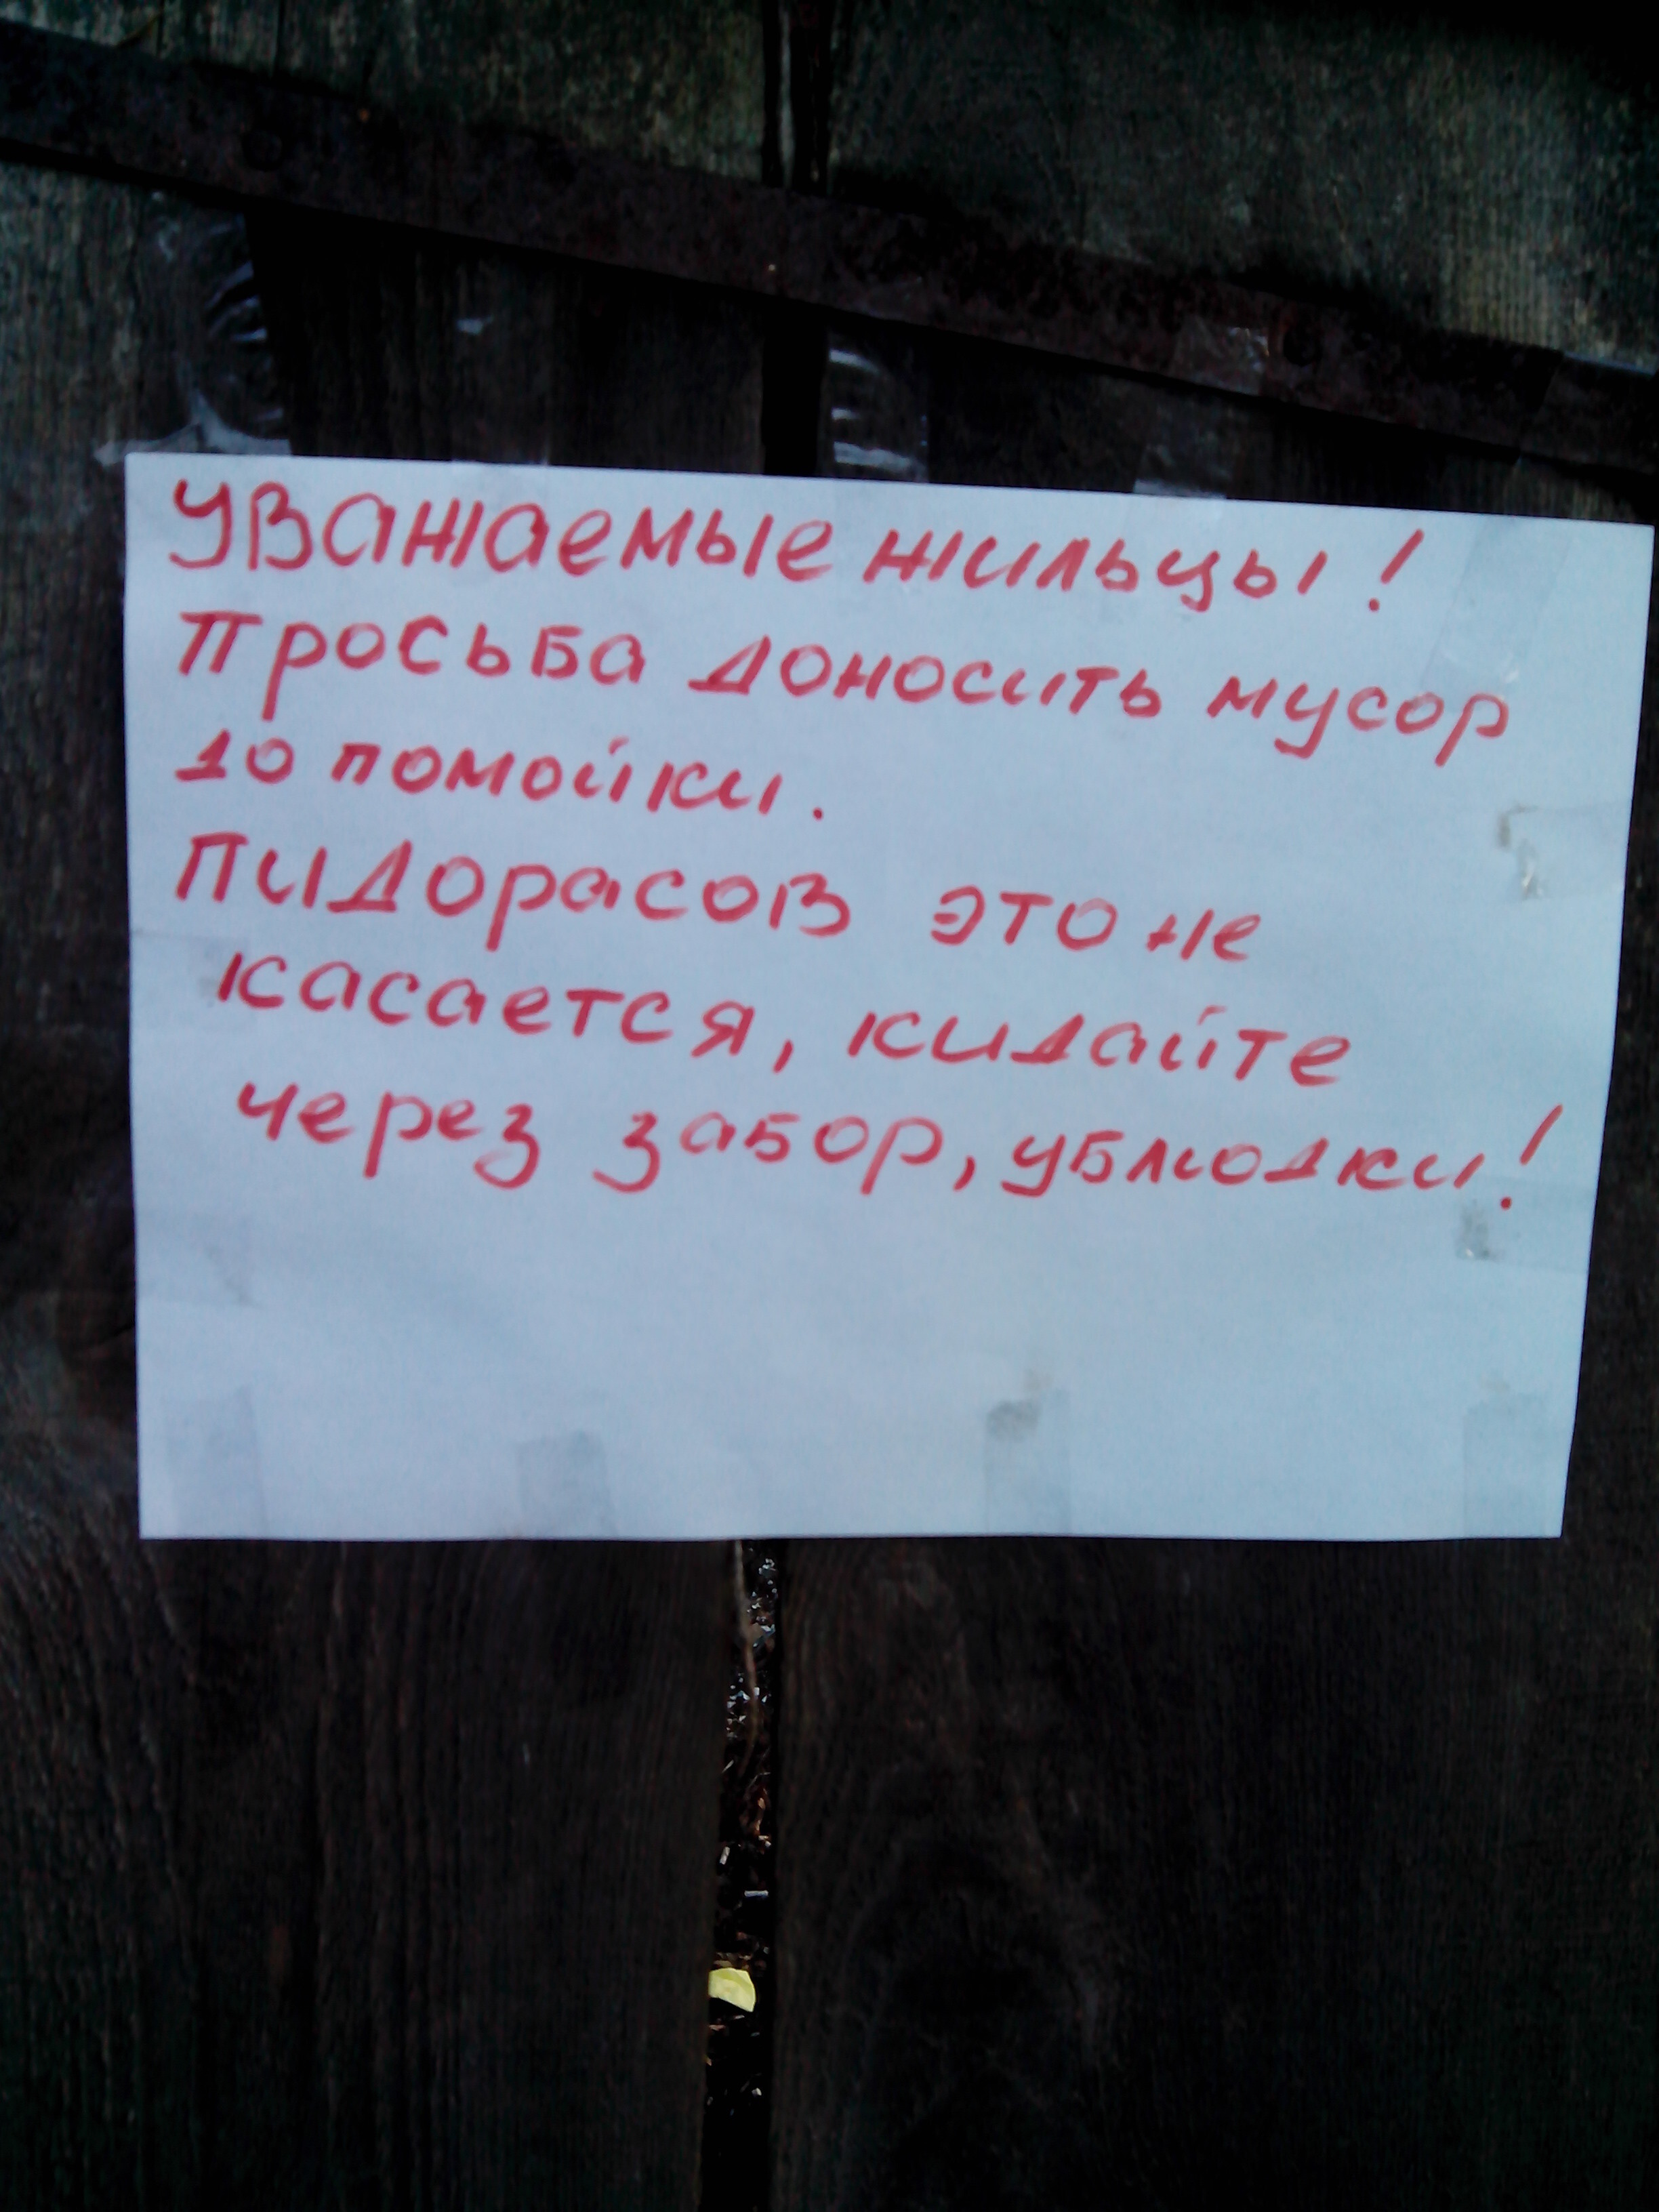 Уважаемые жильцы!
Просьба доносить мусор
до помойки.
Пидорасов это не
касается, кидайте
через забор, ублюдки!